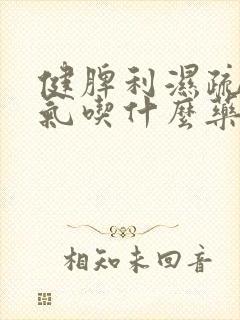 健脾利濕疏
氣喫什麼藥
相知未回音